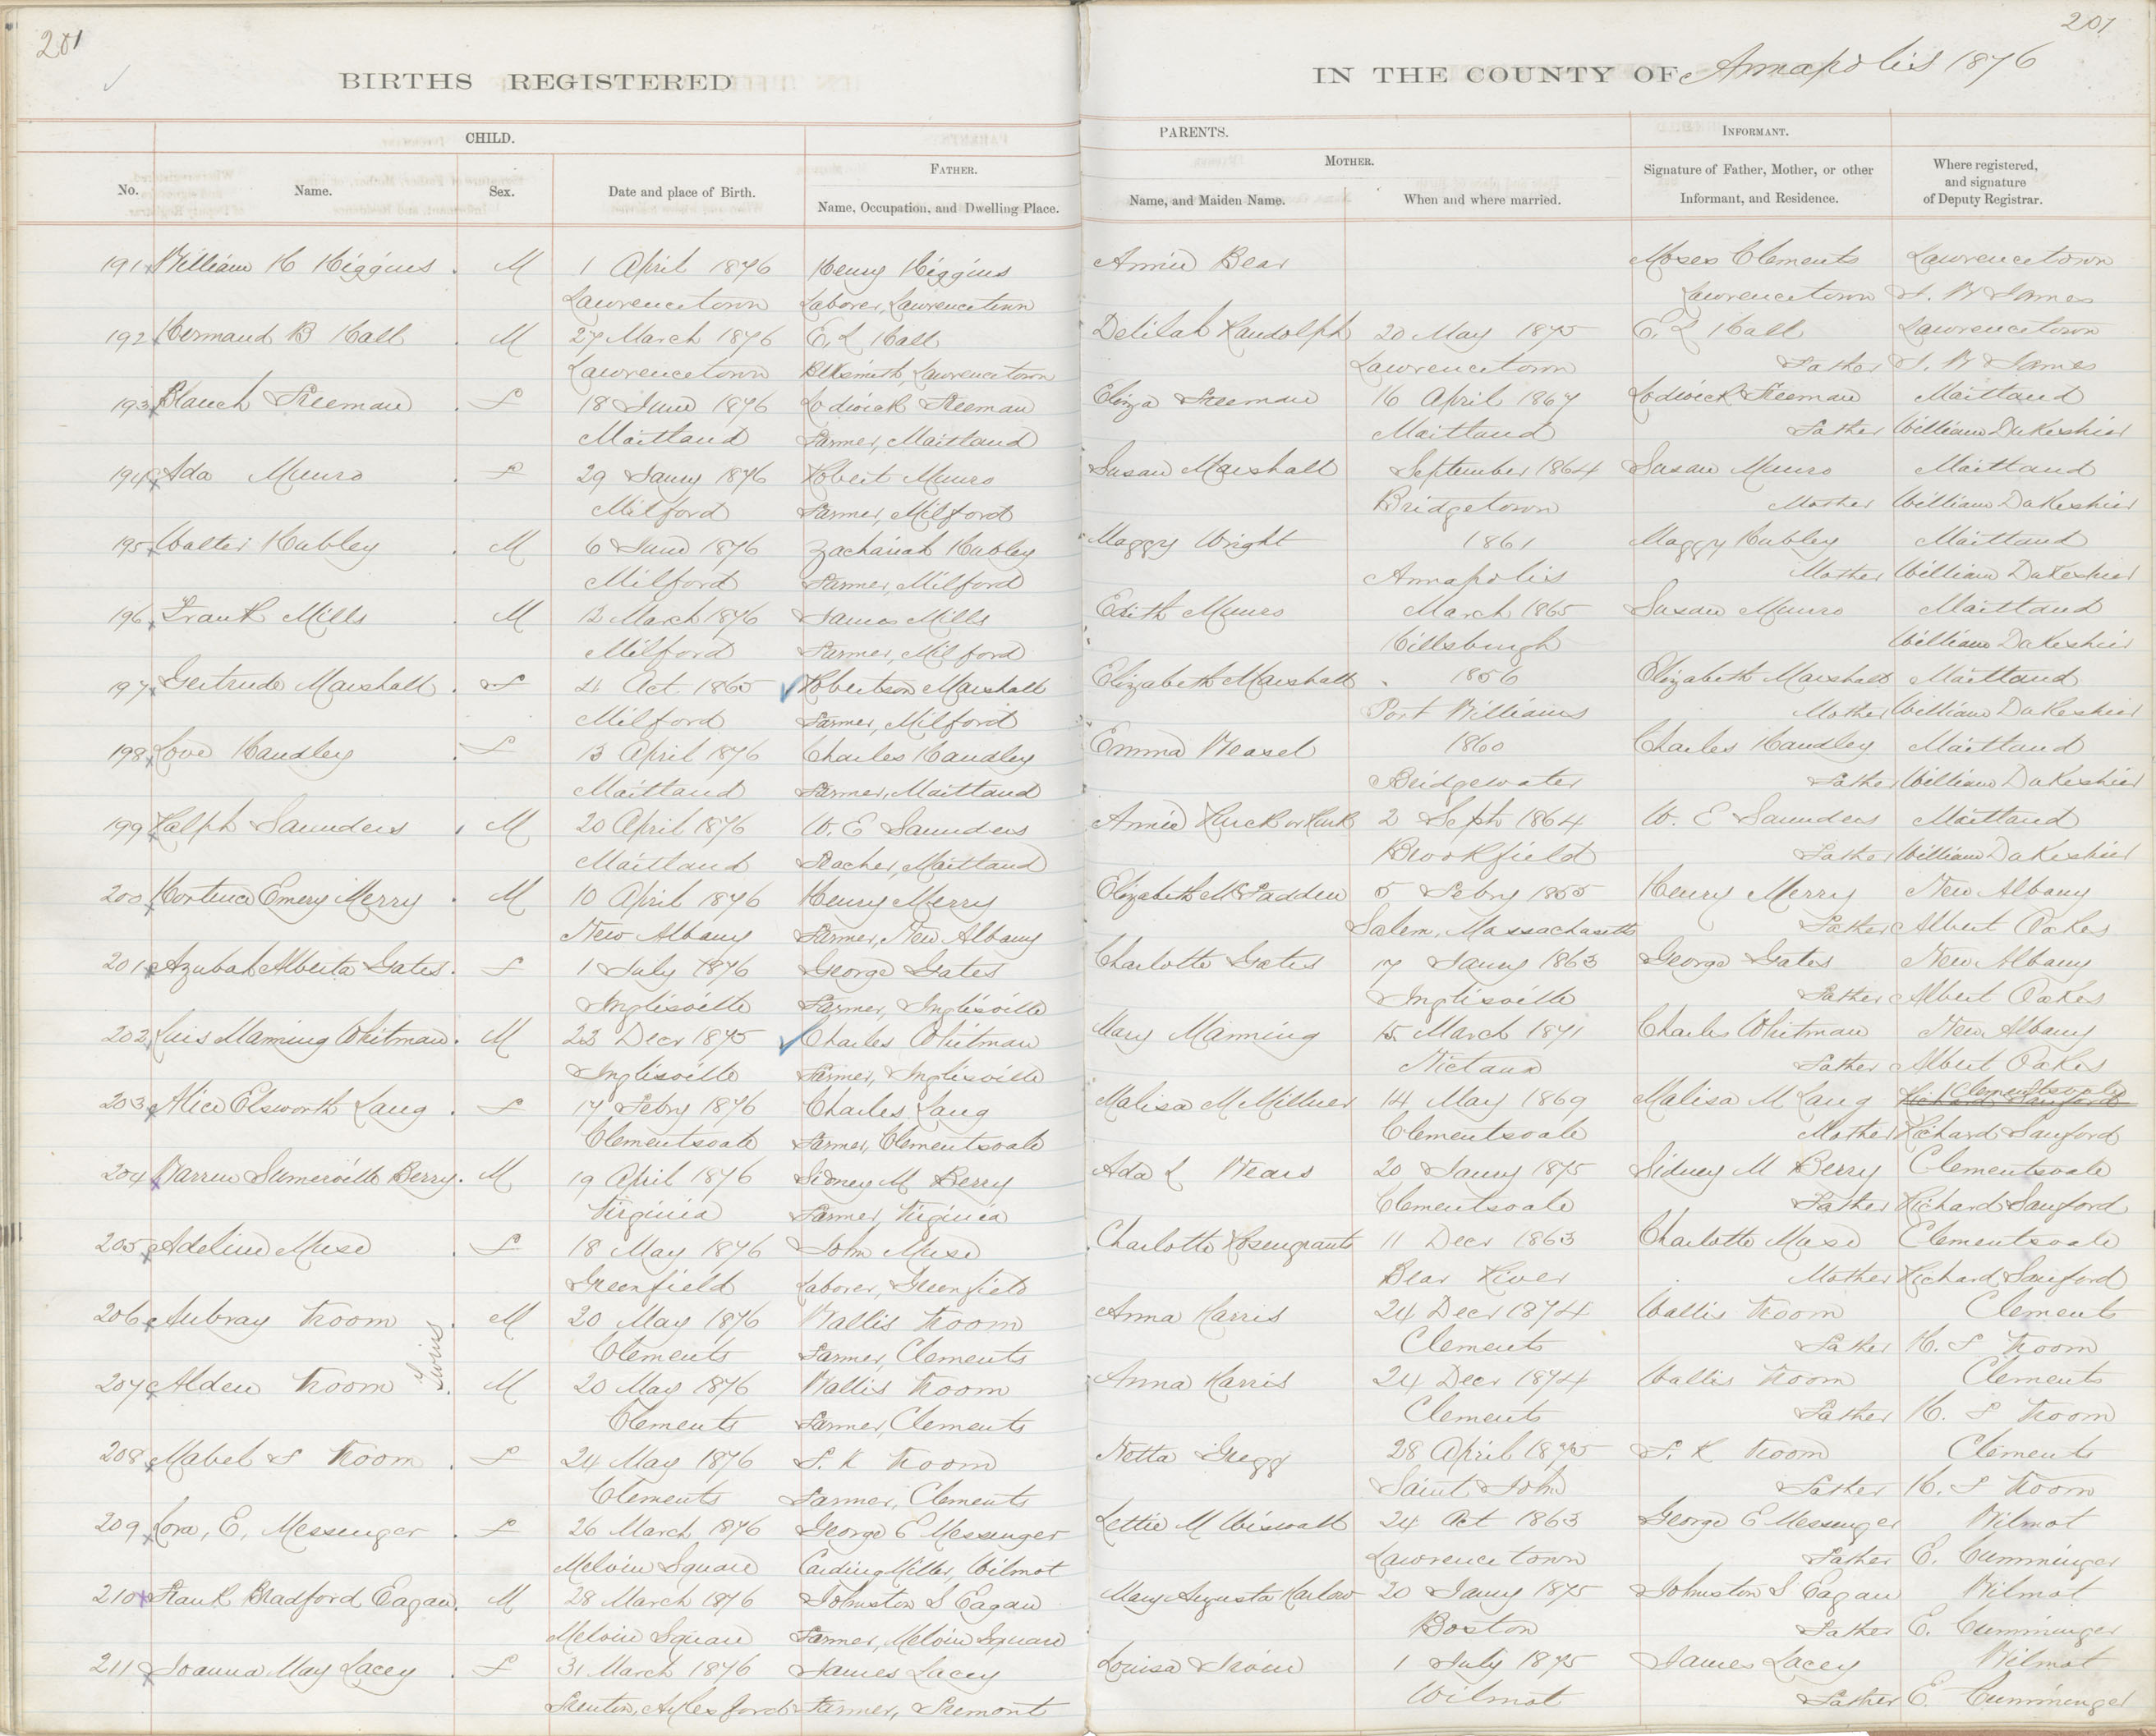 201
201
BIRTHS REGISTERED
IN THE COUNTY OF Annapolis 1876
CHILD.
PARENTS.
INFORMANT.
FATHER.
MOTHER.
No.
Name.
Sex.
Date and place of Birth.
Name, Occupation, and Dwelling Place.
Name, and Maiden Name.
When and where married.
Signature of Father, Mother, or other
Informant, and Residence.
Where registered,
and signature
of Deputy Registrar.
191 William H Higgins M 1 April 1876 Henry Higgins Annie Bear Moses Clements Lawrencetown
Lawrencetown Laborer, Lawrencetown Lawrencetown J. W James
192 Hermand B Hall M 27 March 1876 E. L Hall Delilah Randolph 20 May 1875 E. L Hall Lawrencetown
Lawrencetown Blksmith, Lawrencetown Lawrencetown Father J. W James
193 Blanch Freeman F 18 June 1876 Lodwick Freeman Eliza Freeman 16 April 1867 Lodwick Freeman Maitland
Maitland Farmer, Maitland Maitland Father William Dukeshier
194 Ada Munro F 29 Jany 1876 Robert Munro Susan Marshall September 1864 Susan Munro Maitland
Milford Farmer, Milford Bridgetown Mother William Dukeshier
195 Walter Hubley M 6 June 1876 Zachariah Hubley Maggy Wright 1861 Maggy Hubley Maitland
Milford Farmer, Milford Annapolis Mother William Dukeshier
196 Frank Mills M 12 March 1876 James Mills Edith Munro March 1865 Susan Munro Maitland
Milford Farmer, Milford Hillsburgh William Dukeshier
197 Gertrude Marshall F 21 Oct. 1865 Robertson Marshall Elizabeth Marshall 1856 Elizabeth Marshall Maitland
Milford Farmer, Milford Port Williams Mother William Dukeshier
198 Love Handley F 13 April 1876 Charles Handley Emma Weasel 1860 Charles Handley Maitland
Maitland Farmer, Maitland Bridgewater Father William Dukeshier
199 Ralph Saunders M 20 April 1876 W. E Saunders Annie or 2 Sept 1864 W. E Saunders Maitland
Maitland Teacher, Maitland Brookfield Father William Dukeshier
200 Hortence Emery Merry M 10 April 1876 Henry Merry Elizabeth McFadden 5 Febry 1855 Henry Merry New Albany
New Albany Farmer, New Albany Salem, Massachusetts Father Albert Oakes
201 Azubah Alberta Gates F 1 July 1876 George Gates Charlotte Gates 7 Jany 1863 George Gates New Albany
Inglisville Farmer, Inglisville Inglisville Father Albert Oakes
202 Luis Manning Whitman M 23 Decr 1875 Charles Whitman Mary Manning 15 March 1871 Charles Whitman New Albany
Inglisville Farmer, Inglisville Nictaux Father Albert Oakes
203 Alice Elsworth Lang F 17 Febry 1876 Charles Lang Malisa M Millner 14 May 1869 Malisa M Lang Clementsvale
Clementsvale Farmer, Clementsvale Clementsvale Mother Richard Sanford
204 Warren Sumerville Berry M 19 April 1876 Sidney M Berry Ada L Wears 20 Jany 1875 Sidney M Berry Clementsvale
Virginia Farmer, Virginia Clementsvale Father Richard Sanford
205 Adeline Muse F 18 May 1876 John Muse Charlotte Rosengrants 11 Decr 1863 Charlotte Muse Clementsvale
Greenfield Laborer, Greenfield Bear River Mother Richard Sanford
206 Aubray Troom M 20 May 1876 Wallis Troom Anna Harris 24 Decr 1874 Wallis Troom Clements
Twins
Clements Farmer, Clements Clements Father H. S Troom
207 Alden Troom M 20 May 1876 Wallis Troom Anna Harris 24 Decr 1874 Wallis Troom Clements
Clements Farmer, Clements Clements Father H. S Troom
208 Mabel S Troom F 24 May 1876 S. K Troom Netta Gregg 28 April 1875 S. K Troom Clements
Clements Farmer, Clements Saint John Father H. S Troom
209 Lora, E. Messenger F 26 March 1876 George E Messenger Lettie M Wiswall 24 Oct 1863 George E Messenger Wilmot
Melvin Square Carding Miller, Wilmot Lawrencetown Father E. Cumminger
210 Frank Bradford Eagan M 28 March 1876 Johnston S Eagan Mary Augusta Harlow 20 Jany 1875 Johnston S Eagan Wilmot
Melvin Square Farmer, Melvin Square Boston Father E. Cumminger
211 Joanna May Lacey F 31 March 1876 James Lacey Louisa Irvin 1 July 1875 James Lacey Wilmot
Aylesford Farmer, Tremont Wilmot Father E. Cumminger